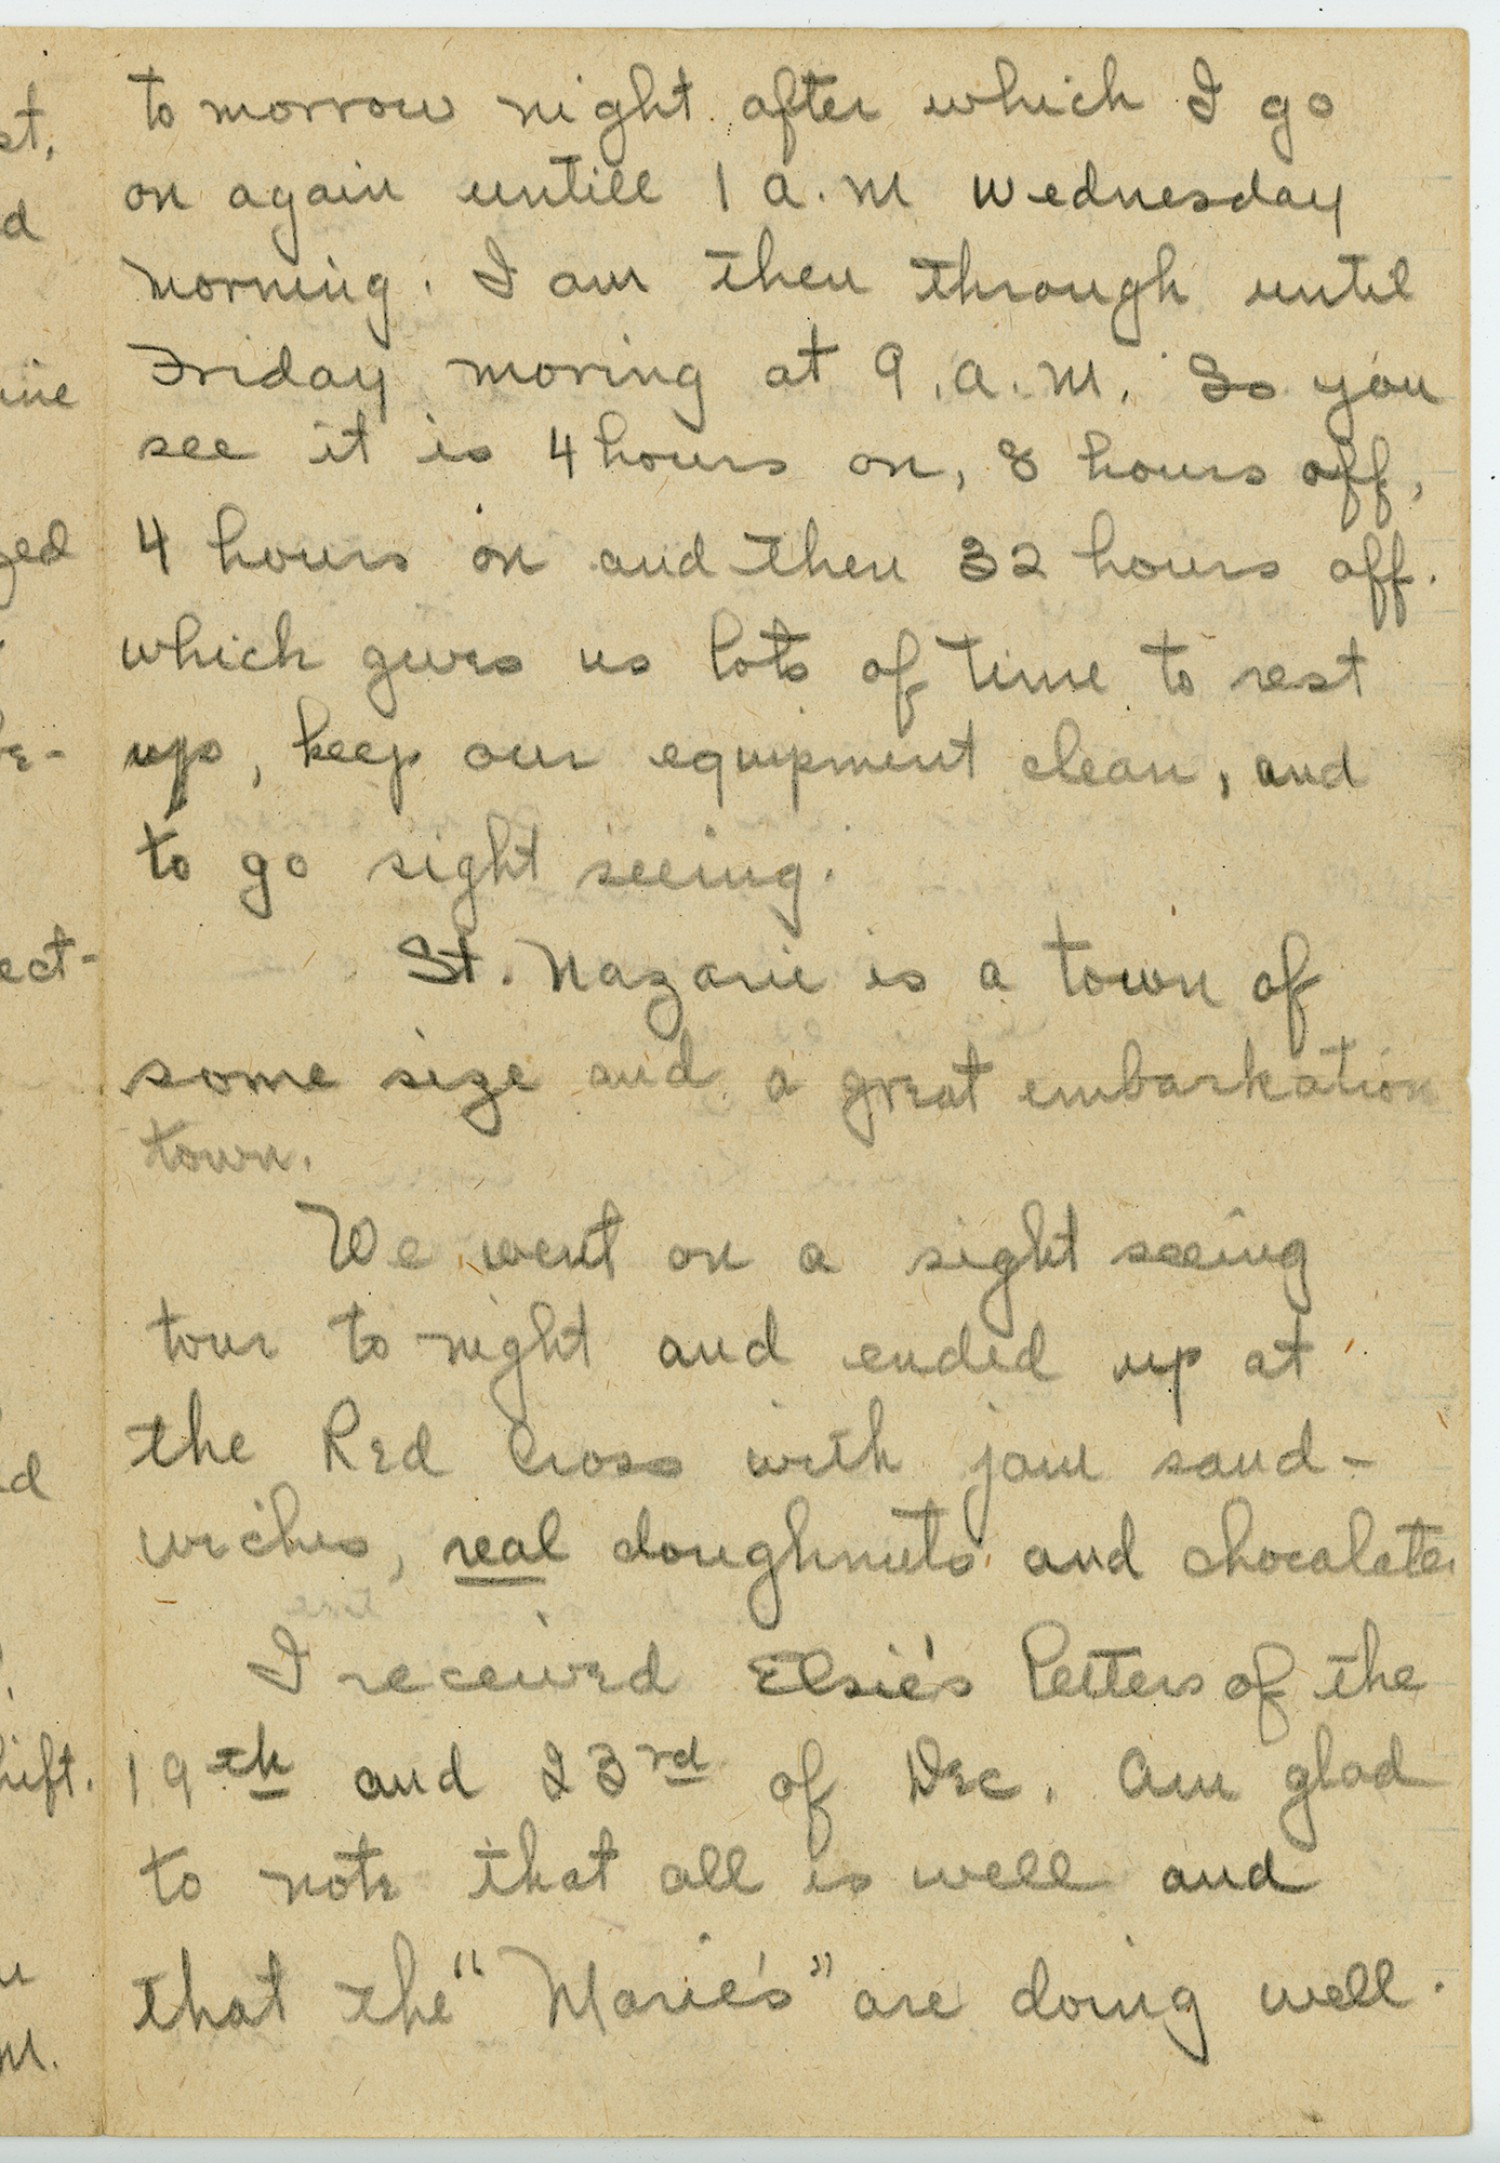 to morrow night after which I go
on again untill 1 a.m Wednesday
morning. I am then through until
Friday moring at 9.a.m. So you
see it is 4 hours on, 8 hours off,
4 hours on and then 32 hours off.
which gives us lots of time to rest
up, keep our equipment clean, and
to go sight seeing.
St. Nazarie is a town of
some size and a great embarkation
town.
We went on a sight seeing
tour to night and ended up at
the Red Cross with jam sand-
wiches, real doughnuts and chocalate.
I received Elsie's letters of the
19th and 23rd of Dec. Am glad
to note that all is well and
that the "Marie's" are doing well.
st,
d
ine
zed
re-
ect-
d
hift.
u
M.